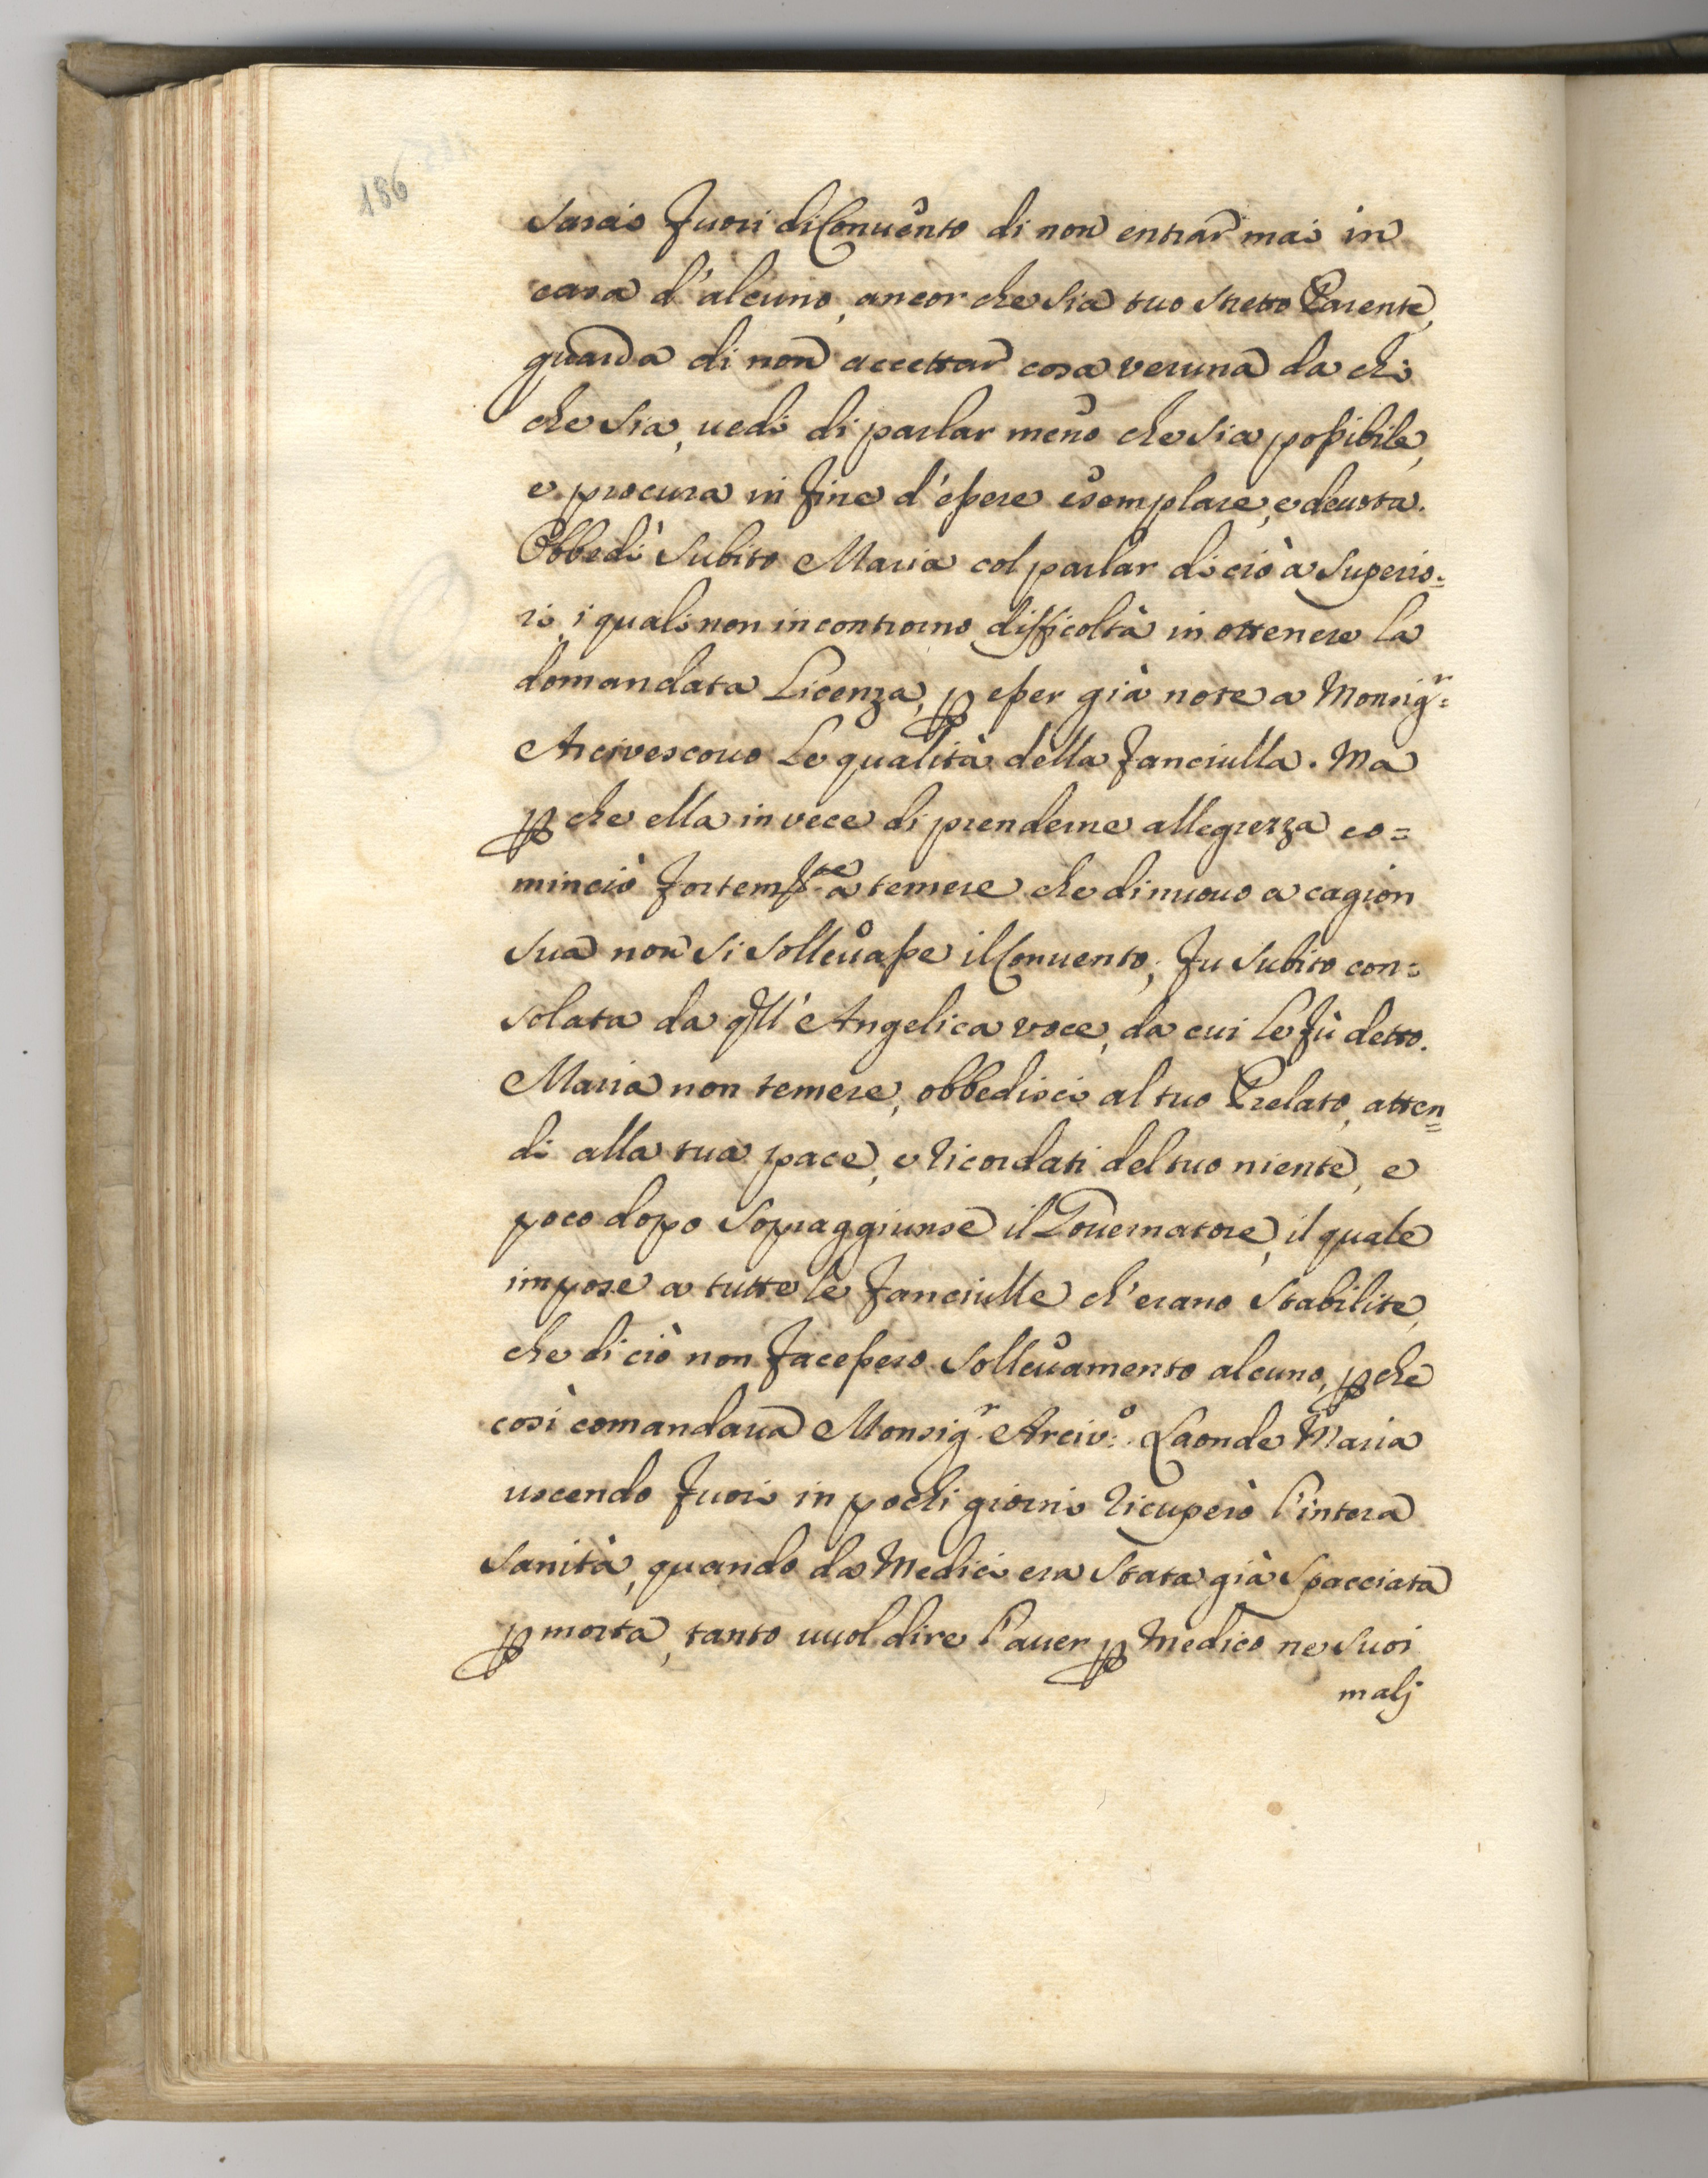 186
sarai fuori di Conuento di non entrar mai in
casa d'alcuno, ancor che sia tuo stretto Parente,
guarda di non accettar cosa veruna da chi
che sia, uedi di parlar meno che sia possibile,
e procura in fine d'essere esemplare, e deuota.
Obbedì subito Maria col parlar di ciò à superio=
ri, i quali non incontrorno difficoltà in ottenere la
domandata Licenza, p esser già note a Monsigr=
Arcivescouo le qualità della fanciulla. Ma
p che ella in vece di prenderne allegrezza co=
minciò fortemte à temere che di nuouo a cagion
sua non si solleuasse il Conuento; fu subito con=
solata da qll' Angelica voce, da cui le fù detto.
Maria non temere, obbedisci al tuo Prelato, atten=
di alla tua pace, e ricordati del tuo niente, e
poco dopo sopraggiunse il Gouernatore, il quale
impose a tutte le fanciulle ch'erano stabilite,
che di ciò non facessero solleuamento alcuno, pche
così comandaua Monsigr Arciuo: Laonde Maria
uscendo fuori in pochi giorni ricuperò l'intera
sanità, quando da Medici era stata già spacciata
p morta, tanto uuol dire l'auer p Medico ne suoi
malj